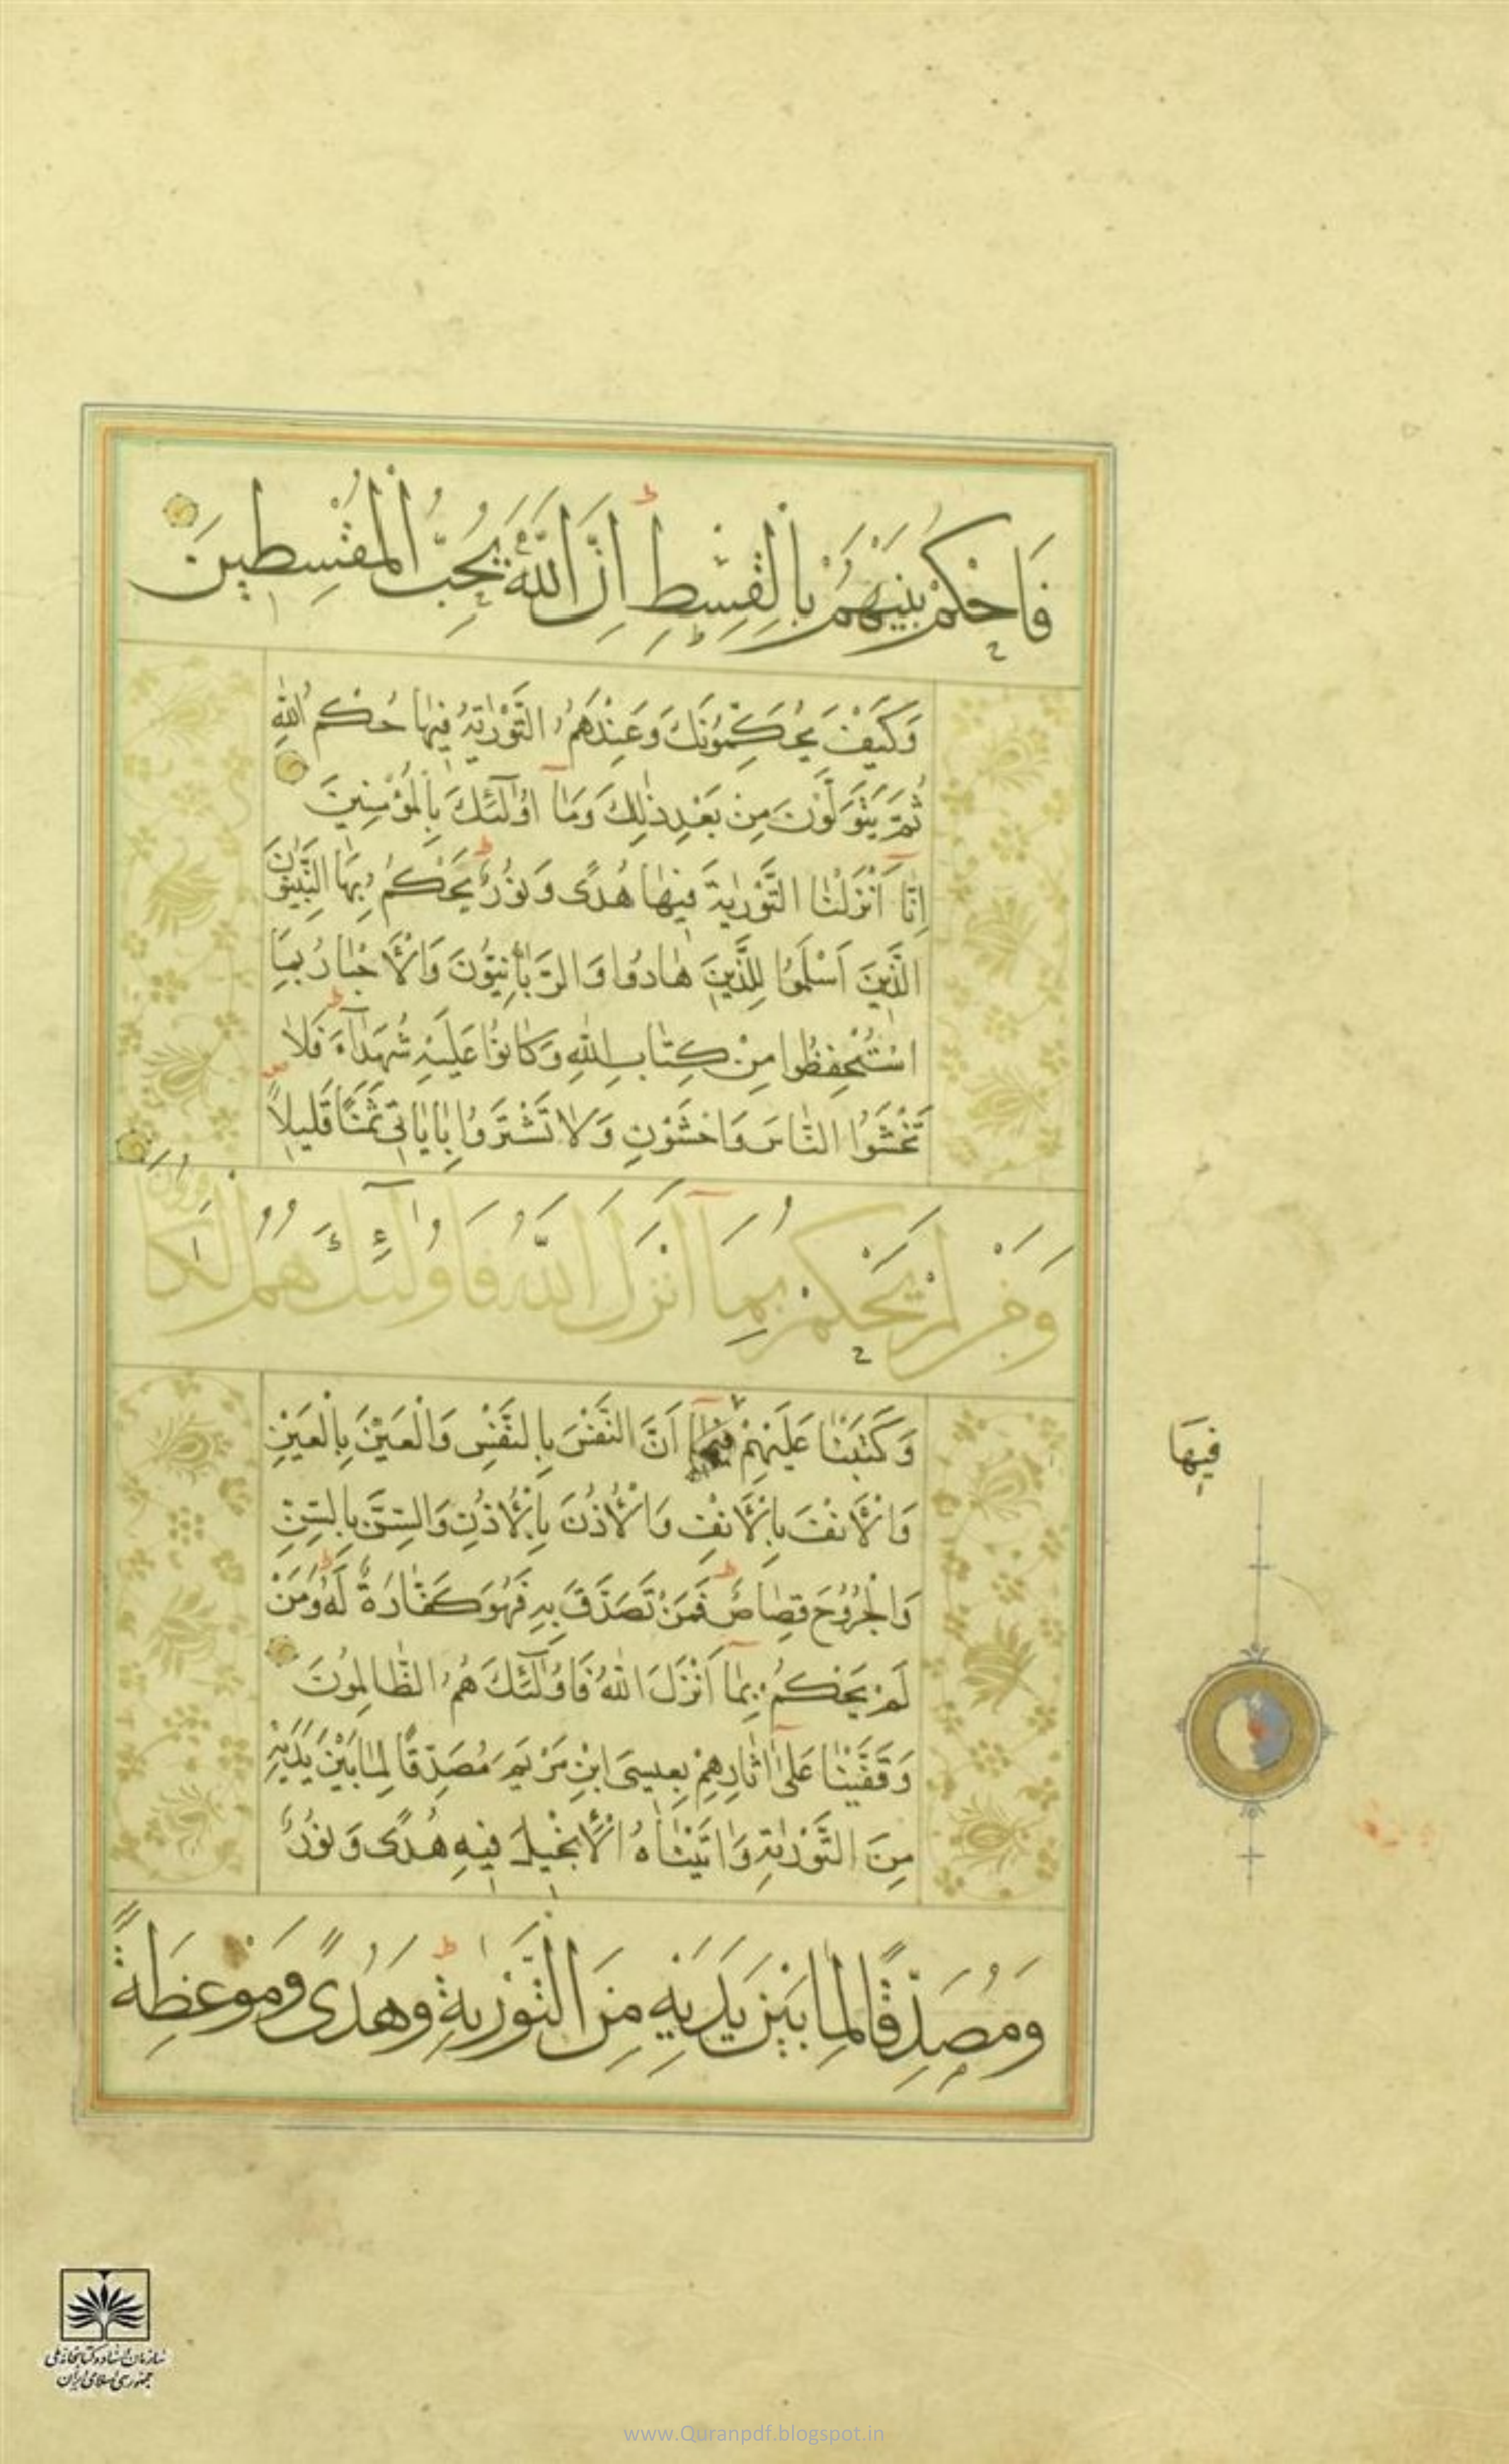 فَاحْكُمْ بَيْنَهُمْ بِالْقِسْطِ اِنَّ اللّٰهَ يُحِبُّ الْمُقْسِطِينَ
وَكَيْفَ يُحَكِّمُونَكَ وَعِنْدَهُمُ التَّوْرٰيةُ فِيهَا حُكْمُ اللّٰهِ
ثُمَّ يَتَوَلَّوْنَ مِنْ بَعْدِ ذٰلِكَ وَمَآ اُولٰٓئِكَ بِالْمُؤْمِنِينَ
اِنَّآ اَنْزَلْنَا التَّوْرٰيةَ فِيهَا هُدًى وَنُورٌ يَحْكُمُ بِهَا النَّبِيُّونَ
الَّذِينَ اَسْلَمُوا لِلَّذِينَ هَادُوا وَالرَّبَّانِيُّونَ وَالْاَحْبَارُ بِمَا
اسْتُحْفِظُوا مِنْ كِتَابِ اللّٰهِ وَكَانُوا عَلَيْهِ شُهَدَآءَ فَلَا
تَخْشَوُا النَّاسَ وَاخْشَوْنِ وَلَا تَشْتَرُوا بِاٰيَاتِى ثَمَنًا قَلِيلًا
وَمَنْ لَمْ يَحْكُمْ بِمَآ اَنْزَلَ اللّٰهُ فَاُولٰٓئِكَ هُمُ الْكَافِرُونَ
وَكَتَبْنَا عَلَيْهِمْ فِيهَآ اَنَّ النَّفْسَ بِالنَّفْسِ وَالْعَيْنَ بِالْعَيْنِ
فِيهَا
وَالْاَنْفَ بِالْاَنْفِ وَالْاُذُنَ بِالْاُذُنِ وَالسِّنَّ بِالسِّنِّ
وَالْجُرُوحَ قِصَاصٌ فَمَنْ تَصَدَّقَ بِهِ فَهُوَ كَفَّارَةٌ لَهُ وَمَنْ
لَمْ يَحْكُمْ بِمَآ اَنْزَلَ اللّٰهُ فَاُولٰٓئِكَ هُمُ الظَّالِمُونَ
وَقَفَّيْنَا عَلٰٓى اٰثَارِهِمْ بِعِيسَى ابْنِ مَرْيَمَ مُصَدِّقًا لِمَا بَيْنَ يَدَيْهِ
مِنَ التَّوْرٰيةِ وَاٰتَيْنَاهُ الْاِنْجِيلَ فِيهِ هُدًى وَنُورٌ
وَمُصَدِّقًا لِمَا بَيْنَ يَدَيْهِ مِنَ التَّوْرٰيةِ وَهُدًى وَمَوْعِظَةً
سازمان اسناد و کتابخانه ملی
جمهوری اسلامی ایران
www.Quranpdf.blogspot.in